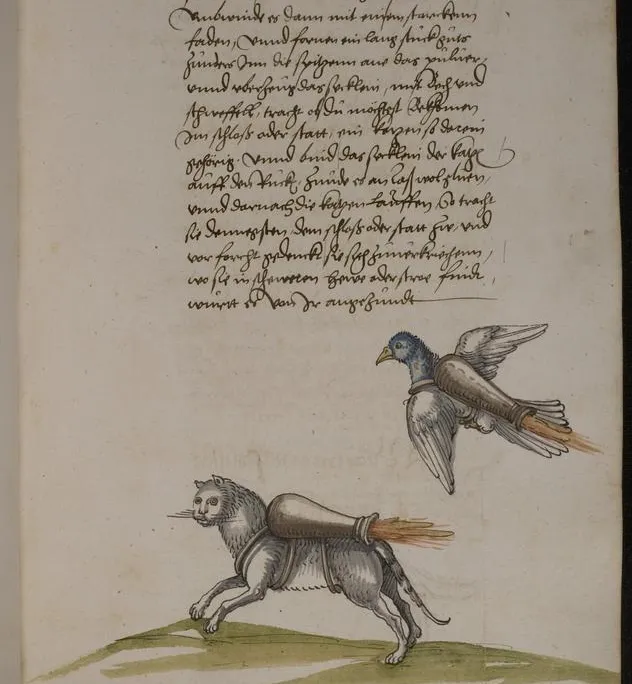 umbwinde es dann mit einem starcken
faden, Vnnd fornen ein lang stuck guts
zünders Inn die spitzenn ane das puluer,
vnnd vberzeug das secklein, mit Bech vnd
schweffell, tracht ob du möchst bekhomen
Im schloß oder statt, ein katzen so darein
gehörig, Vnnd bind das secklein der katze
auff den Ruck, zünde es an las wol gluen,
vnnd darnach die katzen lauffen, So tracht
sie dem negsten, dem schloß oder statt zu, vnd
vor forcht gedenckt sie sich zuuerkriechenn,
wo sie in scheweren hewe oder stroe findt,
württ es von Ir angezündt